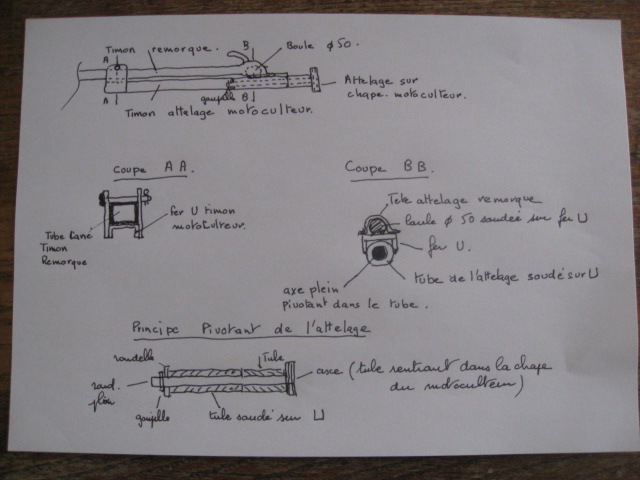 Timon remorque.
B
Boule ϕ 50.
A
Attelage sur
chape motoculteur.
A
goupille B
Timon attelage motoculteur.
Coupe AA.
Coupe BB.
fer U timon
motoculteur.
Tube Carré
Timon
Remorque
Tete attelage remorque
boule ϕ 50 soudée sur fer U
fer U.
tube de l'attelage soudé sur U
axe plein
pivotant dans le tube.
Principe Pivotant de l'attelage
rondelle
Tube
rond
plein
axe (tube rentrant dans la chape
du motoculteur)
goupille
tube soudé sur U